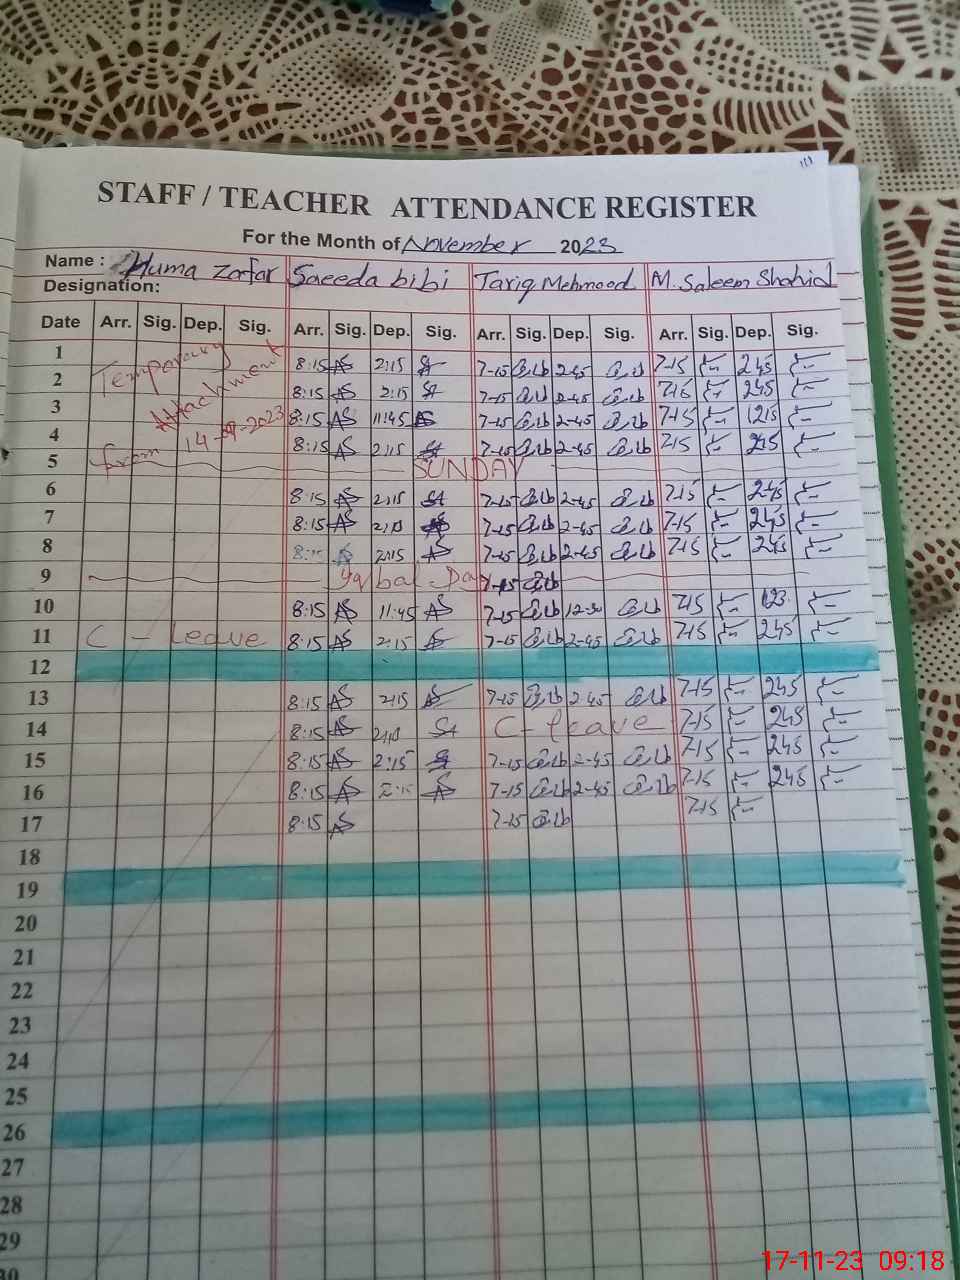 STAFF / TEACHER ATTENDANCE REGISTER
For the Month of November 2023
Name : Huma Zafar Saeeda bibi Tariq Mehmood M. Saleem Shahid
Designation:
Date Arr. Sig. Dep. Sig. Arr. Sig. Dep. Sig. Arr. Sig. Dep. Sig. Arr. Sig. Dep. Sig.
Temporary
Attachment
from 14-9-2023
1 8:15 2:15 7-15 2-45 7-15 245
2 8:15 2:15 7-15 2-45 7-15 245
3 8:15 11:45 7-15 2-45 7-15 1215
4 8:15 2:15 7-15 2-45 7-15 245
5 SUNDAY
6 8:15 2:15 7-15 2-45 7-15 245
7 8:15 2:15 7-15 2-45 7-15 245
8 8:15 2:15 7-15 2-45 7-15 245
9 Iqbal Day 7-15
10 8:15 11:45 7-15 12-30 7-15
11 C - Leave 8:15 2:15 7-15 2-45 7-15 245
12
13 8:15 2:15 7-15 2-45 7-15 245
14 8:15 2:15 C - Leave 7-15 245
15 8:15 2:15 7-15 2-45 7-15 245
16 8:15 2:15 7-15 2-45 7-15 245
17 8:15 7-15 7-15
18
19
20
21
22
23
24
25
26
27
28
29
30
17-11-23 09:18